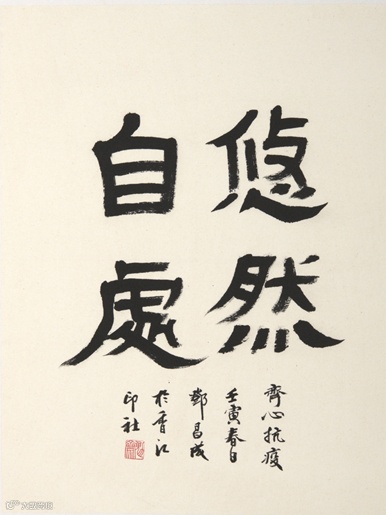 悠然
自處
齊心抗疫
壬寅春日
鄧昌成
於香江
印社